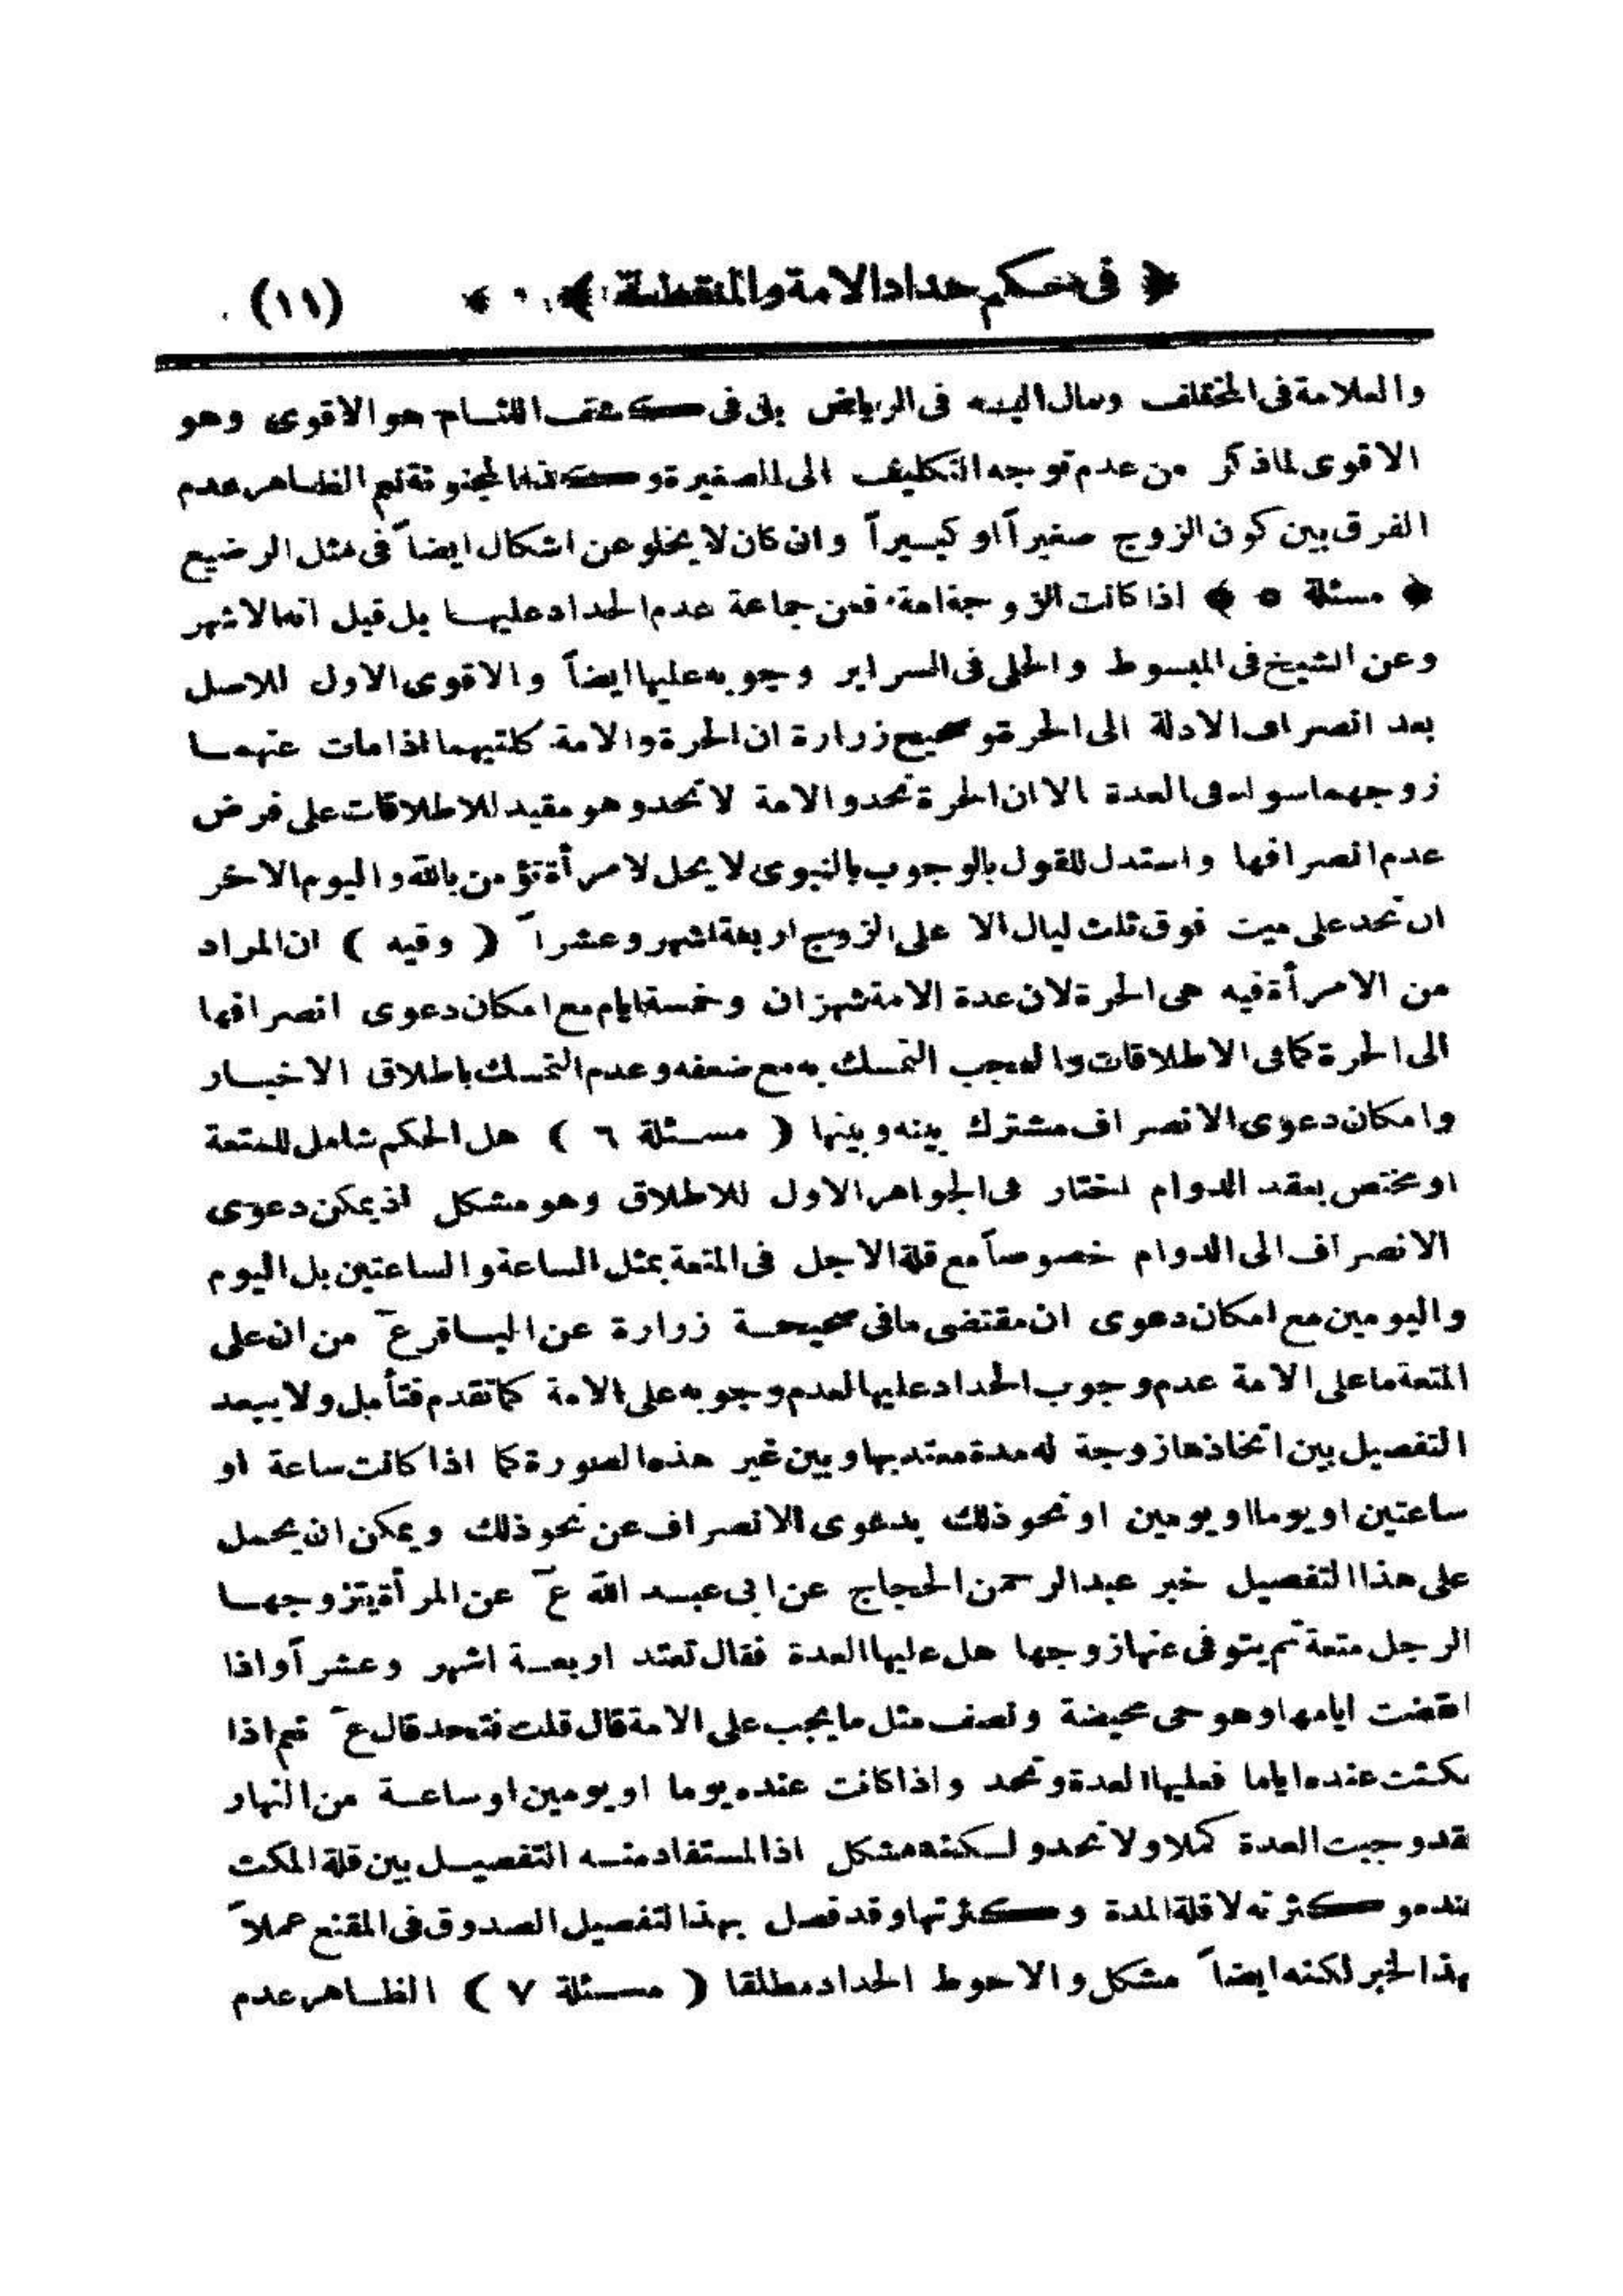 ﴿ فى حكم حداد الامة والمنقطعة ﴾ (١١)
والعلامة فى المختلف ومال اليه فى الرياض بل فى كشف اللثام هو الاقوى وهو
الاقوى لما ذكر من عدم توجه التكليف الى الصغيرة وكذا المجنونة ثم الظاهر عدم
الفرق بين كون الزوج صغيراً او كبيراً وان كان لا يخلو عن اشكال ايضاً فى مثل الرضيع
﴿ مسئلة ٥ ﴾ اذا كانت الزوجة امة فعن جماعة عدم الحداد عليها بل قيل انه الاشهر
وعن الشيخ فى المبسوط والحلى فى السراير وجوبه عليها ايضاً والاقوى الاول للاصل
بعد انصراف الادلة الى الحرة وصحيح زرارة ان الحرة والامة كلتيهما اذا مات عنهما
زوجهما سواء فى العدة الا ان الحرة تحد والامة لا تحد وهو مقيد للاطلاقات على فرض
عدم انصرافها واستدل للقول بالوجوب بالنبوى لا يحل لامرأة تؤمن بالله واليوم الاخر
ان تحد على ميت فوق ثلث ليال الا على الزوج اربعة اشهر وعشراً ( وفيه ) ان المراد
من الامرأة فيه هى الحرة لان عدة الامة شهران وخمسة ايام مع امكان دعوى انصرافها
الى الحرة كما فى الاطلاقات والعجب التمسك به مع ضعفه وعدم التمسك باطلاق الاخبار
وامكان دعوى الانصراف مشترك بينه وبينها ( مسئلة ٦ ) هل الحكم شامل للمتعة
او مختص بعقد الدوام اختار فى الجواهر الاول للاطلاق وهو مشكل اذ يمكن دعوى
الانصراف الى الدوام خصوصاً مع قلة الاجل فى المتعة بمثل الساعة والساعتين بل اليوم
واليومين مع امكان دعوى ان مقتضى ما فى صحيحة زرارة عن الباقر ع من ان على
المتعة ما على الامة عدم وجوب الحداد عليها لعدم وجوبه على الامة كما تقدم فتأمل ولا يبعد
التفصيل بين اتخاذها زوجة له مدة معتد بها وبين غير هذه الصورة كما اذا كانت ساعة او
ساعتين او يوما او يومين او نحو ذلك بدعوى الانصراف عن نحو ذلك ويمكن ان يحمل
على هذا التفصيل خبر عبد الرحمن الحجاج عن ابى عبد الله ع عن المرأة يتزوجها
الرجل متعة ثم يتوفى عنها زوجها هل عليها العدة فقال تعتد اربعة اشهر وعشراً واذا
انقضت ايامها وهو حى حيضة ونصف مثل ما يجب على الامة قال قلت فتحد قال ع نعم اذا
مكثت عنده اياما فعليها العدة وتحد واذا كانت عنده يوما او يومين او ساعة من النهار
فقد وجبت العدة كملا ولا تحد ولكنه مشكل اذ المستفاد منه التفصيل بين قلة المكث
عنده وكثرته لا قلة المدة وكثرتها وقد فصل بهذا التفصيل الصدوق فى المقنع عملاً
بهذا الخبر لكنه ايضاً مشكل والاحوط الحداد مطلقا ( مسئلة ٧ ) الظاهر عدم